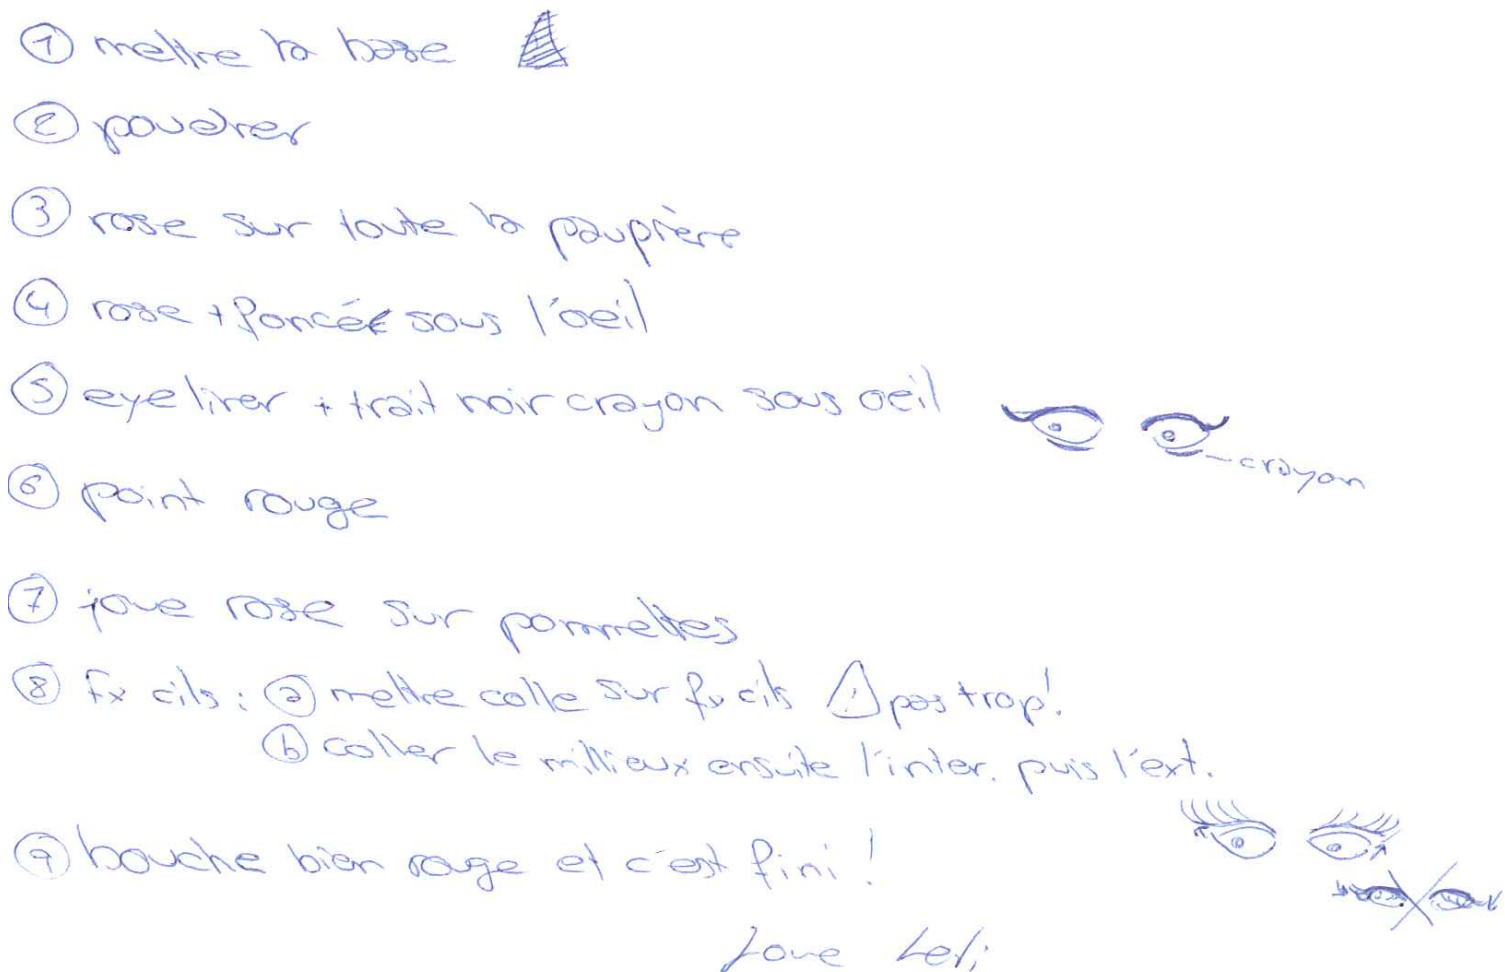 ① mettre la base
② poudrer
③ rose sur toute la paupière
④ rose + foncée sous l'oeil
⑤ eyeliner + trait noir crayon sous oeil
crayon
⑥ point rouge
⑦ joue rose sur pommettes
⑧ fx cils : ⓐ mettre colle sur fx cils ⚠ pas trop!
ⓑ coller le millieux ensuite l'inter. puis l'ext.
⑨ bouche bien rouge et c'est fini !
Love